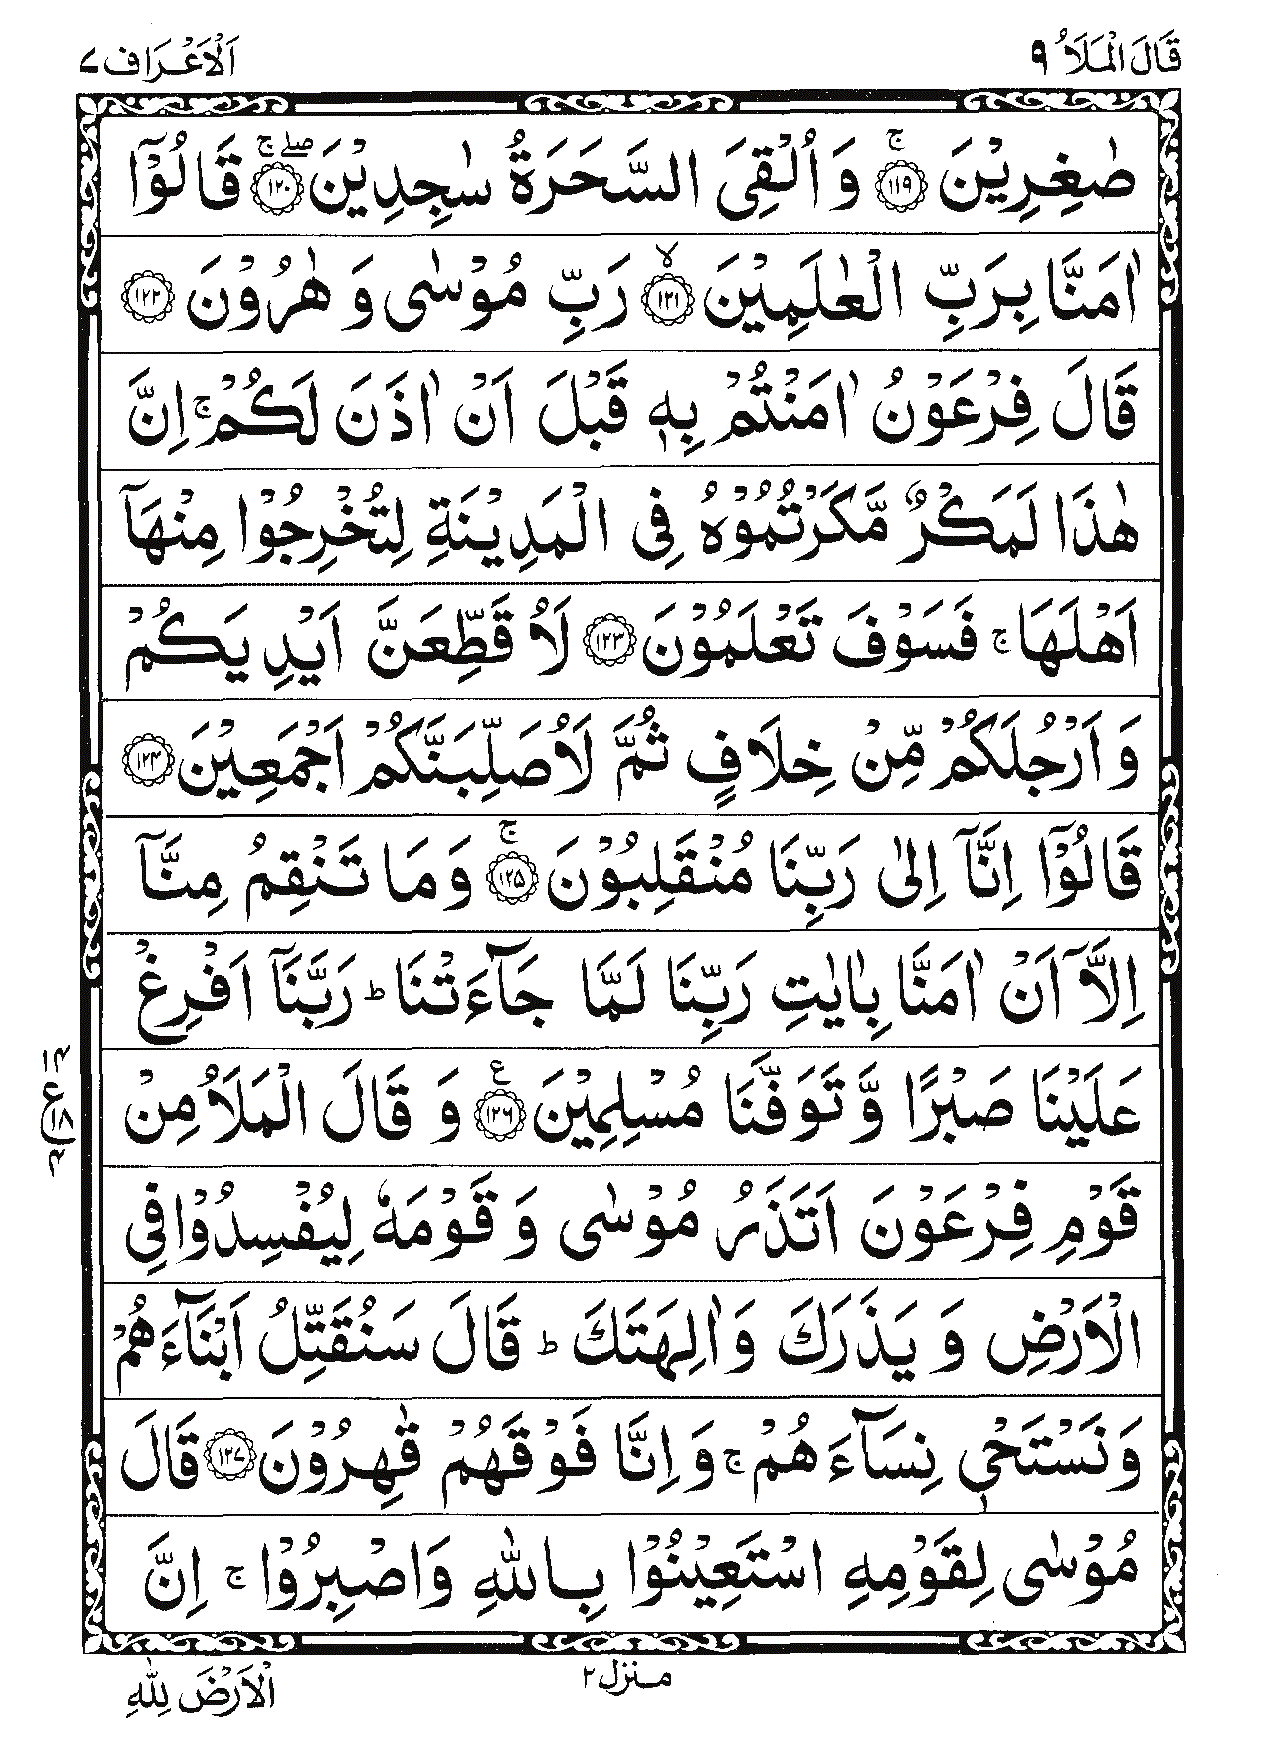 قَالَ الْمَلَاُ ۹
اَلْاَعْرَاف ۷
صٰغِرِیْنَ ۚ﴿۱۱۹﴾ وَ اُلْقِیَ السَّحَرَۃُ سٰجِدِیْنَ ﴿۱۲۰﴾ۚۖ قَالُوْۤا
اٰمَنَّا بِرَبِّ الْعٰلَمِیْنَ ﴿۱۲۱﴾ۙ رَبِّ مُوْسٰی وَ ھٰرُوْنَ ﴿۱۲۲﴾
قَالَ فِرْعَوْنُ اٰمَنْتُمْ بِہٖ قَبْلَ اَنْ اٰذَنَ لَکُمْ ۚ اِنَّ
ھٰذَا لَمَکْرٌ مَّکَرْتُمُوْہُ فِی الْمَدِیْنَۃِ لِتُخْرِجُوْا مِنْھَاۤ
اَھْلَھَا ۚ فَسَوْفَ تَعْلَمُوْنَ ﴿۱۲۳﴾ لَاُ قَطِّعَنَّ اَیْدِ یَکُمْ
وَ اَرْجُلَکُمْ مِّنْ خِلَافٍ ثُمَّ لَاُصَلِّبَنَّکُمْ اَجْمَعِیْنَ ﴿۱۲۴﴾
قَالُوْۤا اِنَّاۤ اِلٰی رَبِّنَا مُنْقَلِبُوْنَ ﴿۱۲۵﴾ۚ وَ مَا تَنْقِمُ مِنَّاۤ
اِلَّاۤ اَنْ اٰمَنَّا بِاٰیٰتِ رَبِّنَا لَمَّا جَآءَتْنَا ؕ رَبَّنَاۤ اَفْرِغْ
عَلَیْنَا صَبْرًا وَّ تَوَفَّنَا مُسْلِمِیْنَ ﴿۱۲۶﴾ع وَ قَالَ الْمَلَاُ مِنْ
۱۴
ع ۱۸
۴
قَوْمِ فِرْعَوْنَ اَتَذَرُ مُوْسٰی وَ قَوْمَہٗ لِیُفْسِدُوْا فِی
الْاَرْضِ وَ یَذَرَکَ وَاٰلِھَتَکَ ؕ قَالَ سَنُقَتِّلُ اَبْنَآءَھُمْ
وَنَسْتَحْیٖ نِسَآءَ ھُمْ ۚ وَ اِنَّا فَوْقَھُمْ قٰھِرُوْنَ ﴿۱۲۷﴾ قَالَ
مُوْسٰی لِقَوْمِہِ اسْتَعِیْنُوْا بِاللّٰہِ وَاصْبِرُوْا ۚ اِنَّ
منزل ۲
الْاَرْضَ لِلّٰہِ